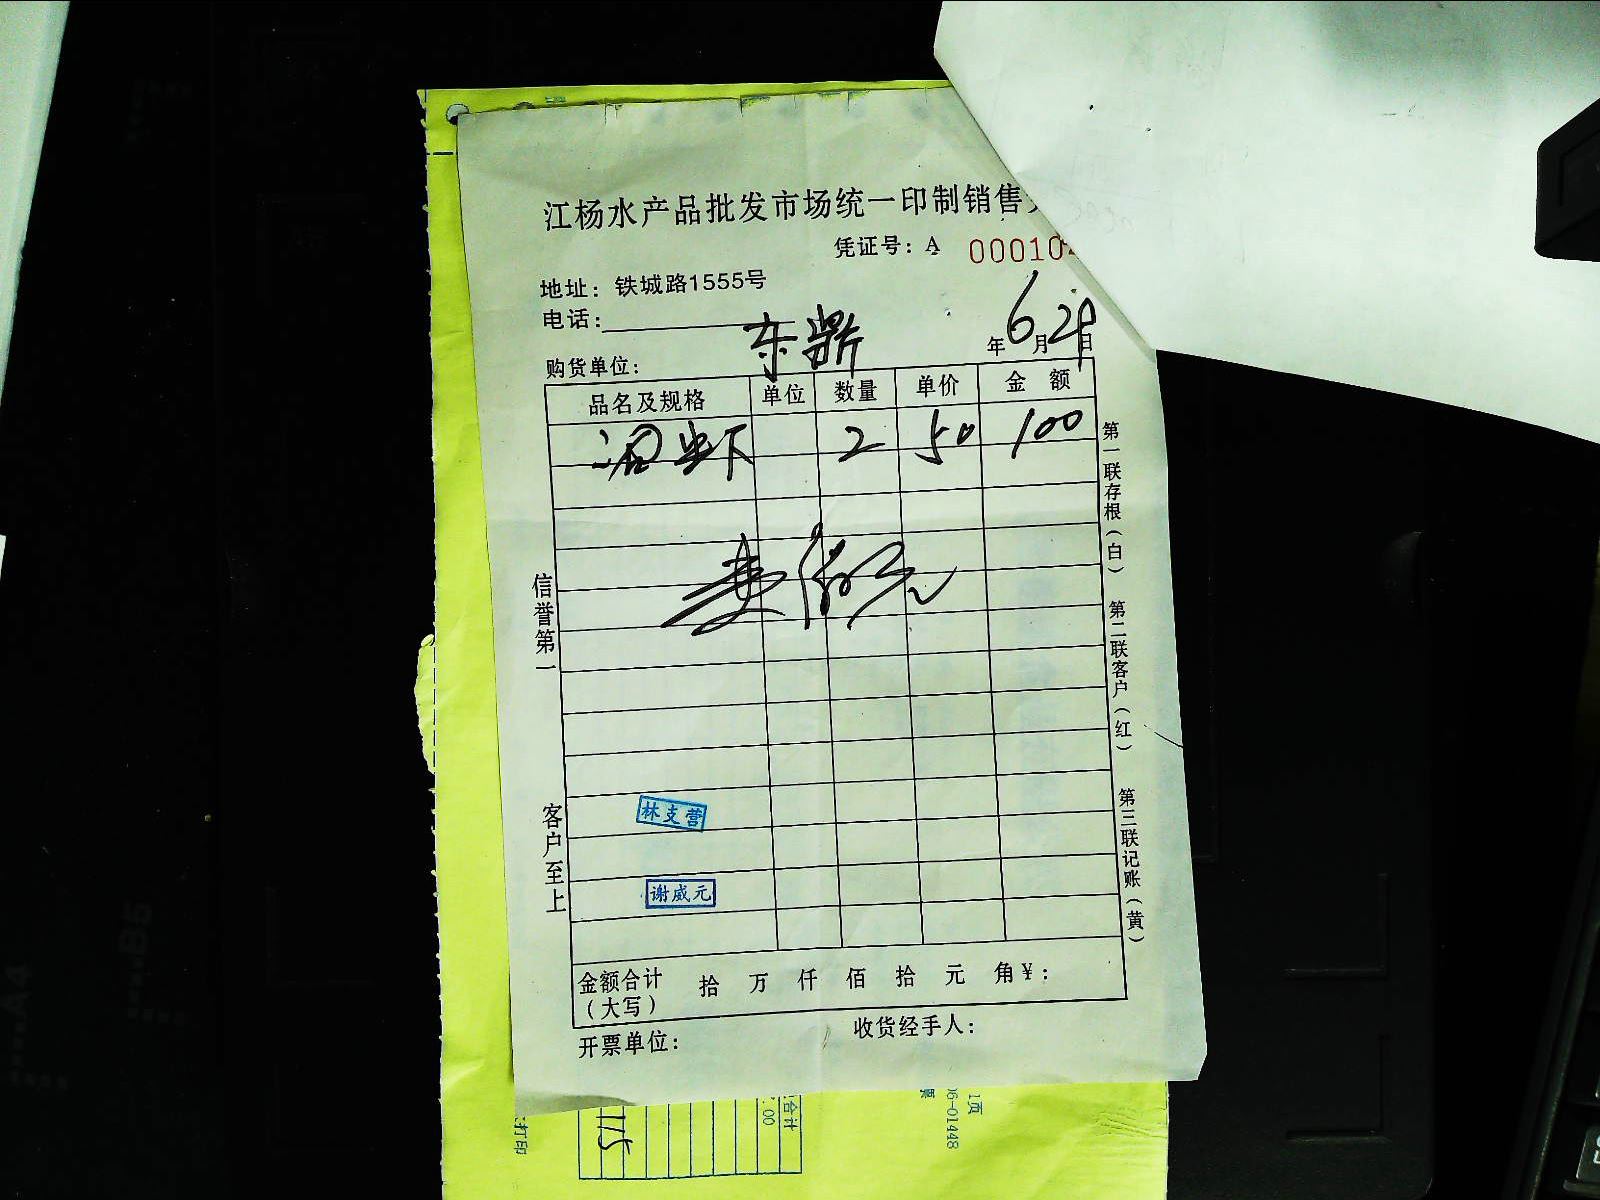 江杨水产品批发市场统一印制销售
凭证号：A 00010
地址：铁城路1555号
电话：
购货单位： 东鼎 年6月29日
品名及规格 单位 数量 单价 金 额
沼虾 2 50 100
信誉第一
客户至上
林支营
谢威元
第一联存根（白）
第二联客户（红）
第三联记账（黄）
金额合计 拾 万 仟 佰 拾 元 角￥：
（大写）
开票单位： 收货经手人：
合计
.00
115
打印
1页
06-01448
票
A4
B5